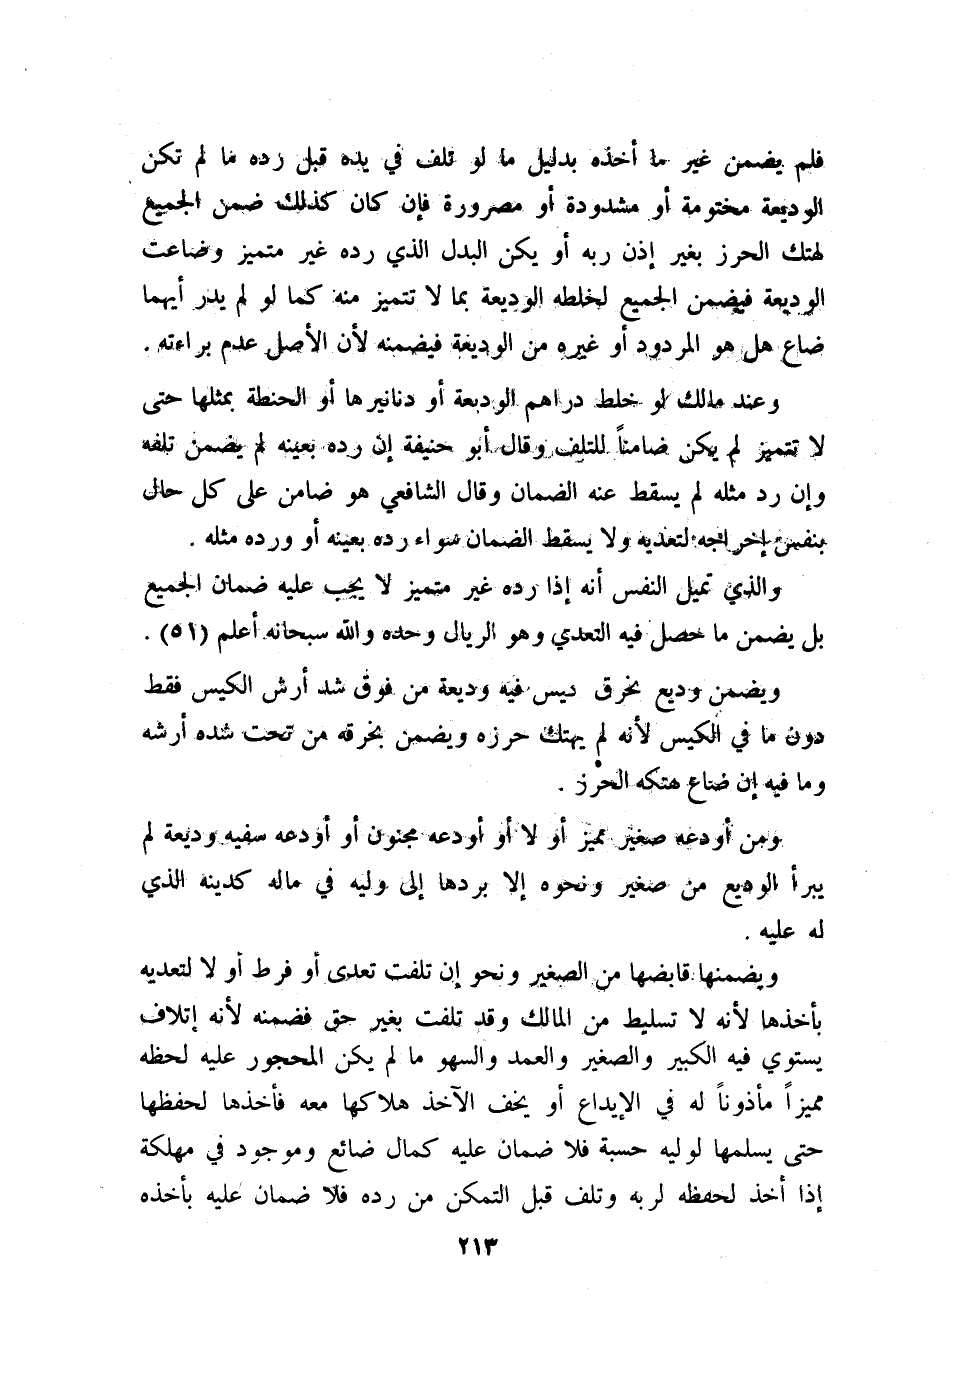 فلم يضمن غير ما أخذه بدليل ما لو تلف في يده قبل رده ما لم تكن
الوديعة مختومة أو مشدودة أو مصرورة فإن كان كذلك ضمن الجميع
لهتك الحرز بغير إذن ربه أو يكن البدل الذي رده غير متميز وضاعت
الوديعة فيضمن الجميع لخلطه الوديعة بما لا تتميز منه كما لو لم يدر أيهما
ضاع هل هو المردود أو غيره من الوديعة فيضمنه لأن الأصل عدم براءته .
وعند مالك لو خلط دراهم الوديعة أو دنانيرها أو الحنطة بمثلها حتى
لا تتميز لم يكن ضامناً للتلف وقال أبو حنيفة إن رده بعينه لم يضمن تلفه
وإن رد مثله لم يسقط عنه الضمان وقال الشافعي هو ضامن على كل حال
بنفس إخراجه لتعديه ولا يسقط الضمان سواء رده بعينه أو ورده مثله .
والذي تميل النفس أنه إذا رده غير متميز لا يجب عليه ضمان الجميع
بل يضمن ما حصل فيه التعدي وهو الريال وحده والله سبحانه أعلم (٥١) .
ويضمن وديع بخرق كيس فيه وديعة من فوق شد أرش الكيس فقط
دون ما في الكيس لأنه لم يهتك حرزه ويضمن بخرقه من تحت شده أرشه
وما فيه إن ضاع هتكه الحرْز .
ومن أودعه صغير مميز أو لا أو أودعه مجنون أو أودعه سفيه وديعة لم
يبرأ الوديع من صغير ونحوه إلا بردها إلى وليه في ماله كدينه الذي
له عليه .
ويضمنها قابضها من الصغير ونحو إن تلفت تعدى أو فرط أو لا لتعديه
بأخذها لأنه لا تسليط من المالك وقد تلفت بغير حق فضمنه لأنه إتلاف
يستوي فيه الكبير والصغير والعمد والسهو ما لم يكن المحجور عليه لحظه
مميزاً مأذوناً له في الإيداع أو يخف الآخذ هلاكها معه فأخذها لحفظها
حتى يسلمها لوليه حسبة فلا ضمان عليه كمال ضائع وموجود في مهلكة
إذا أخذ لحفظه لربه وتلف قبل التمكن من رده فلا ضمان عليه بأخذه
٢١٣